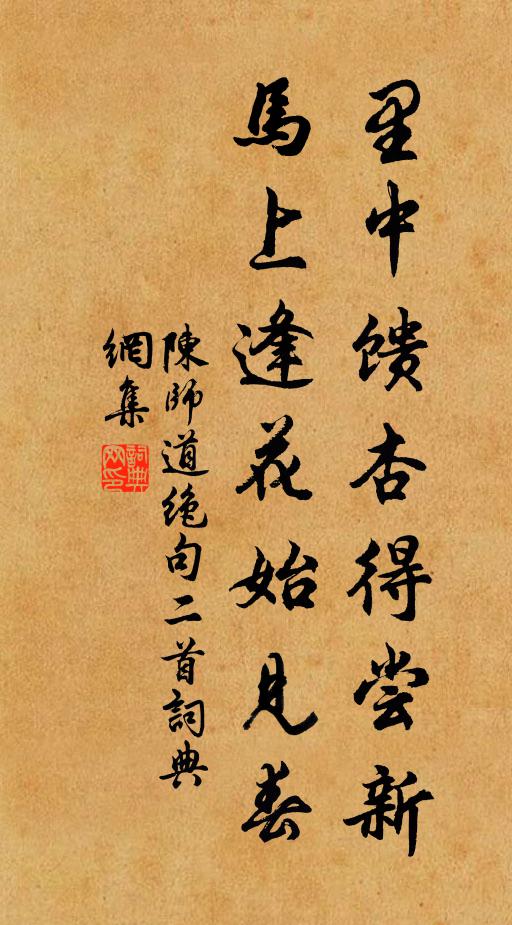 里中馈杏得尝新
馬上逢花始見春
陳師道絶句二首詞典
網集
詞典
网印